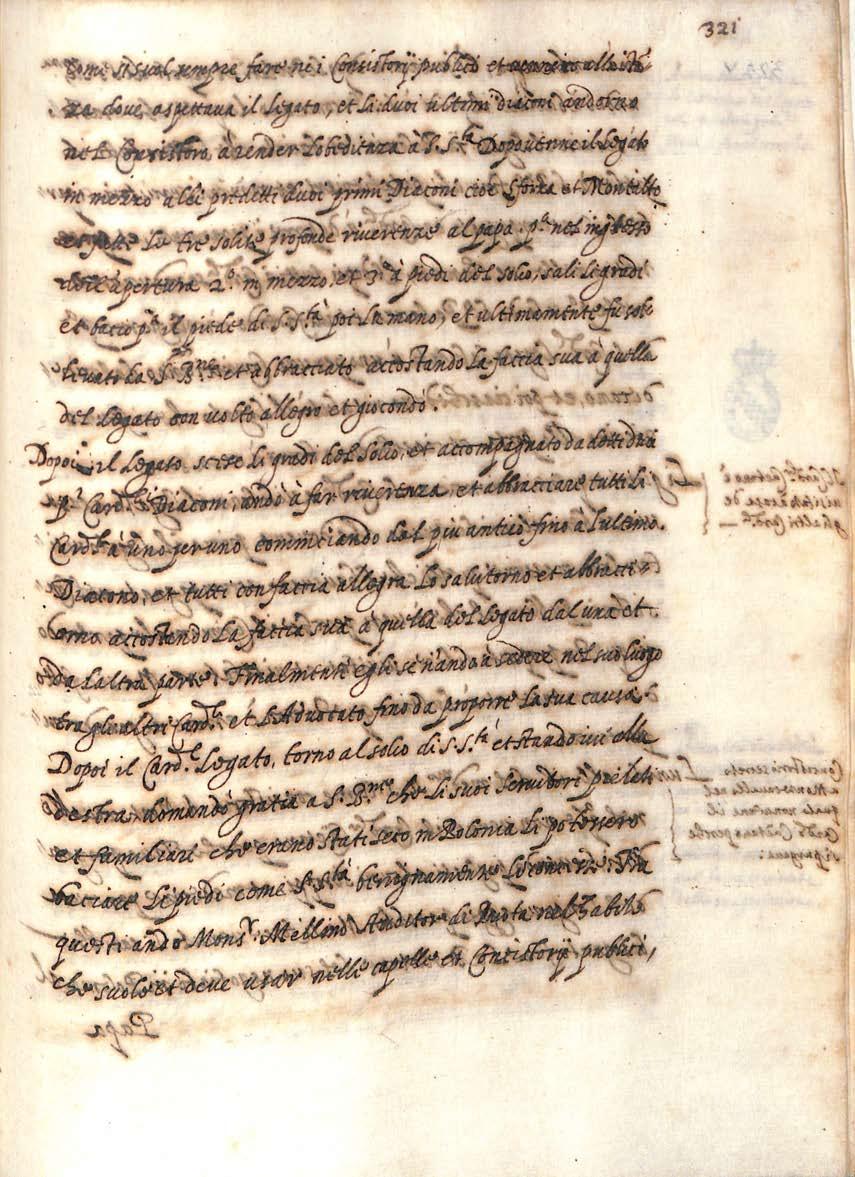 321
come si suol sempre fare nei Consistorij publici et alla
za dove aspettava il Legato, et li duoi ultimi diaconi andorno
nel Consistoro, à render lobedienza à S. S.tà Dopo venne il Legato
in mezzo alli predetti duoi primi Diaconi cioè Sforza et Montalto
et fatte le tre solite profonde riverenze al papa. p.a nel ingresso
del apertura 2.o in mezzo, et 3.o à piedi del solio, sali li gradi
et bacio p.a il piede di S. S.tà poi la mano, et ultimamente fu sol
levato da S. B.ne et abbracciato accostando la faccia sua à quella
del Legato con volto allegro et giocondo.
Dopoi il Legato scese li gradi del solio, et accompagnato da detti dui
Card.li Diaconi, andò à far riverenza et abbracciare tutti li
Card.li à uno per uno cominciando dal piu antico fino à lultimo
Diacono, et tutti con faccia allegra lo salutorno et abbracci-
orno accostando la faccia sua à quella del Legato dal una et
da laltra parte. Finalmente egli se n'andò à sedere nel suo luogo
tra gli altri Card.li et l'Advocato fino da proporre la sua causa.
Dopoi il Card.le Legato, torno al solio di S. S.tà et stando ivi alla
destra, domandò gratia à S. B.ne che li suoi servitori prelati
et familiari che erano stati seco in Bolonia li potessero
baciare li piedi come S. S.tà benignamente li concesse. Fra
questi andò Mons.r Mellino Auditor di Ruota nel habito
che suole et deve usar nelle capelle et Concistorij publici,